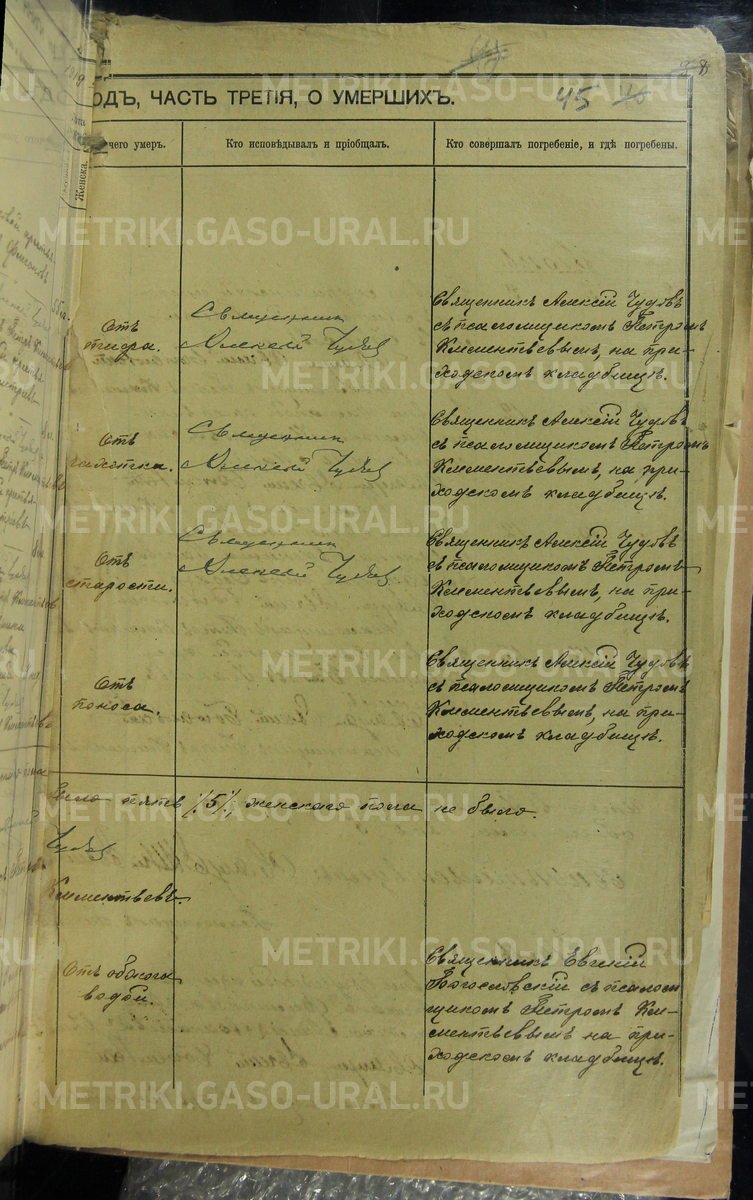 98
ОДЪ, ЧАСТЬ ТРЕТІЯ, О УМЕРШИХЪ.
45
Женска.
чего умеръ.
Кто исповѣдывалъ и пріобщалъ.
Кто совершалъ погребеніе, и гдѣ погребены.
Отъ
тифа.
Священник
Алексей Чудов
Священникъ Алексій Чудовъ
съ псаломщикомъ Петромъ
Климентьевымъ, на при-
ходскомъ кладбищѣ.
Отъ
чахотки.
Священник
Алексей Чудов
Священникъ Алексій Чудовъ
съ псаломщикомъ Петромъ
Климентьевымъ, на при-
ходскомъ кладбищѣ.
Отъ
старости.
Священник
Алексей Чудов
Священникъ Алексій Чудовъ
съ псаломщикомъ Петромъ
Климентьевымъ, на при-
ходскомъ кладбищѣ.
Отъ
поноса.
Священникъ Алексій Чудовъ
съ псаломщикомъ Петромъ
Климентьевымъ, на при-
ходскомъ кладбищѣ.
было пять /5/, женскаго пола не было.
Чудов
Климентьевъ.
Отъ
водки.
Священникъ Евгеній
Богословскій съ псалом
щикомъ Петромъ Кли-
ментьевымъ на при-
ходскомъ кладбищѣ.
METRIKI.GASO-URAL.RU